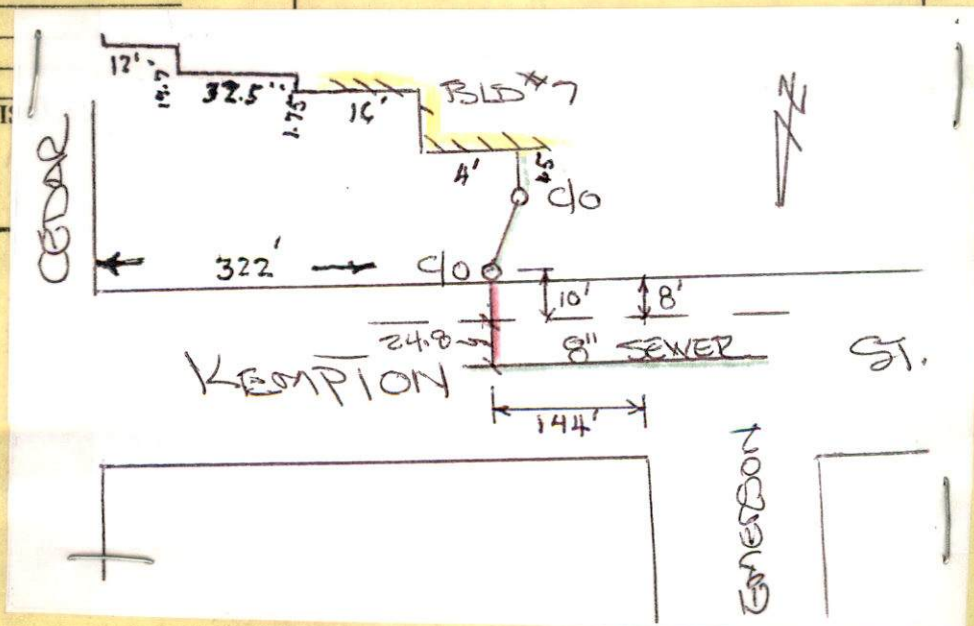 12'
32.5"
1.75
16'
BLD #7
N
CEDAR
4'
C/O
322'
C/O
10'
8'
24.8
8" SEWER
KEMPTON
ST.
144'
EMERSON